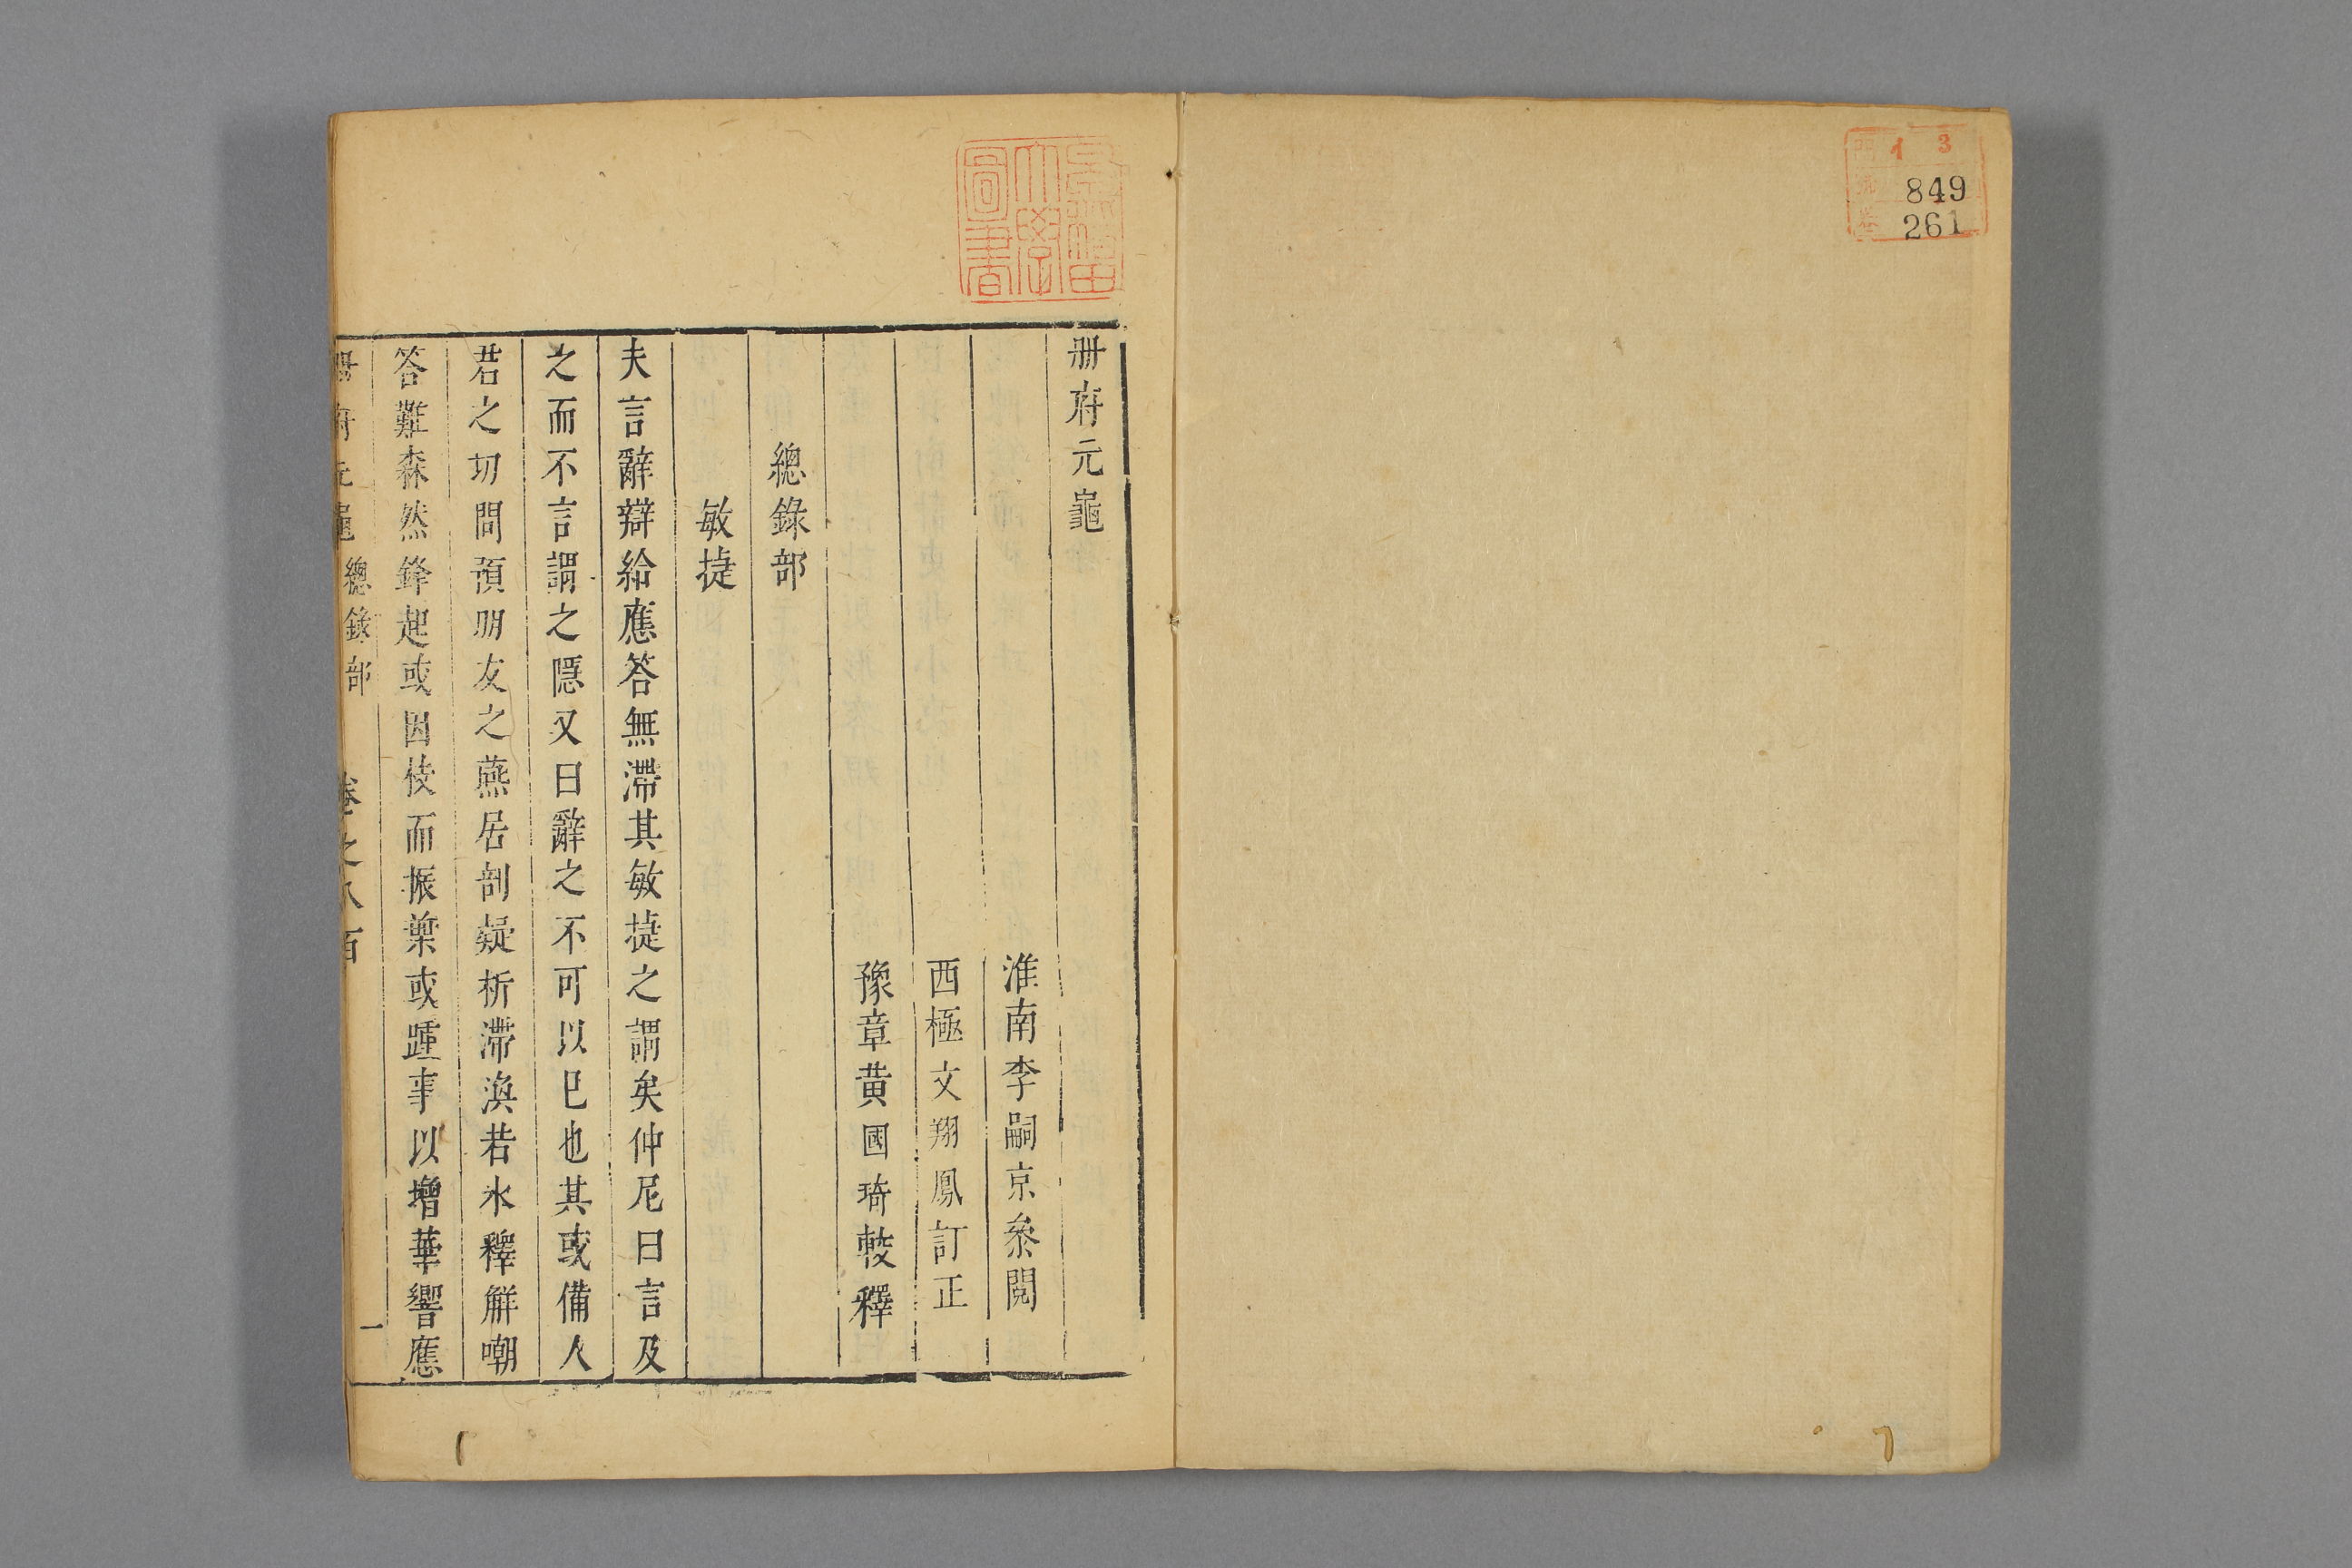 3
849
261
早稲田
大學
圖書
册府元龜
淮南李嗣京叅閱
西極文翔鳳訂正
豫章黃國琦較釋
總錄部
敏捷
夫言辭辯給應答無滯其敏捷之謂矣仲尼曰言及
之而不言謂之隱又曰辭之不可以已也其或備人
君之切問預朋友之燕居剖疑析滯渙若氷釋觧嘲
答難森然鋒起或因枝而振葉或踵事以增華響應
册府元龜 總錄部 卷之八百 一